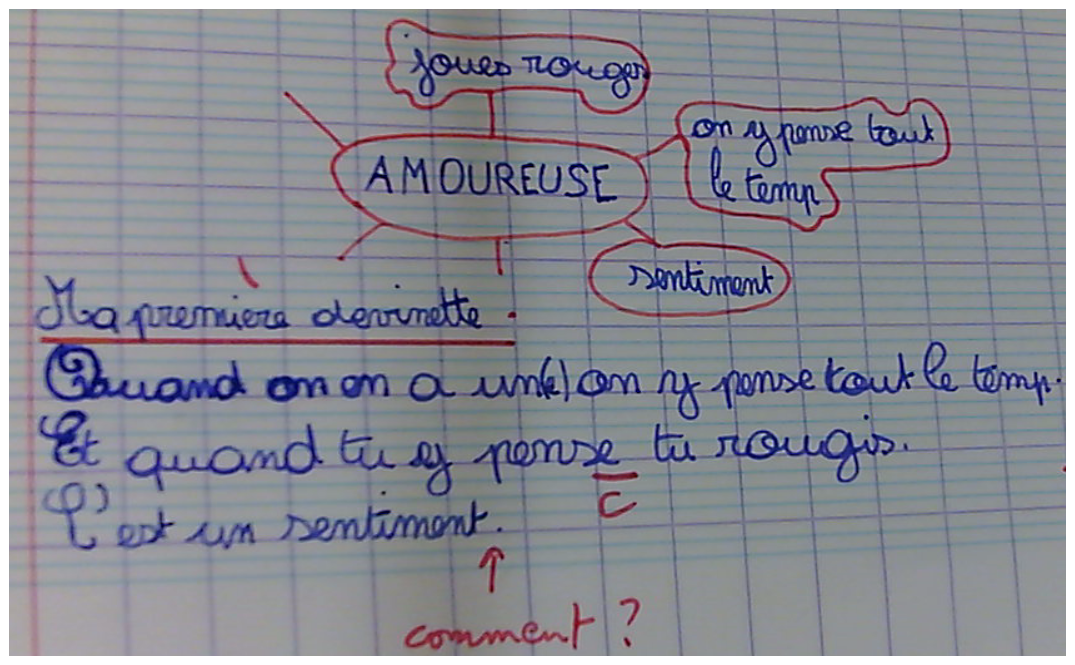 joues rouges
AMOUREUSE
on y pense tout
le temp
sentiment
Ma première devinette.
Quand on en a un(e) on y pense tout le temp.
Et quand tu y pense tu rougis.
C
C'est un sentiment.
comment ?